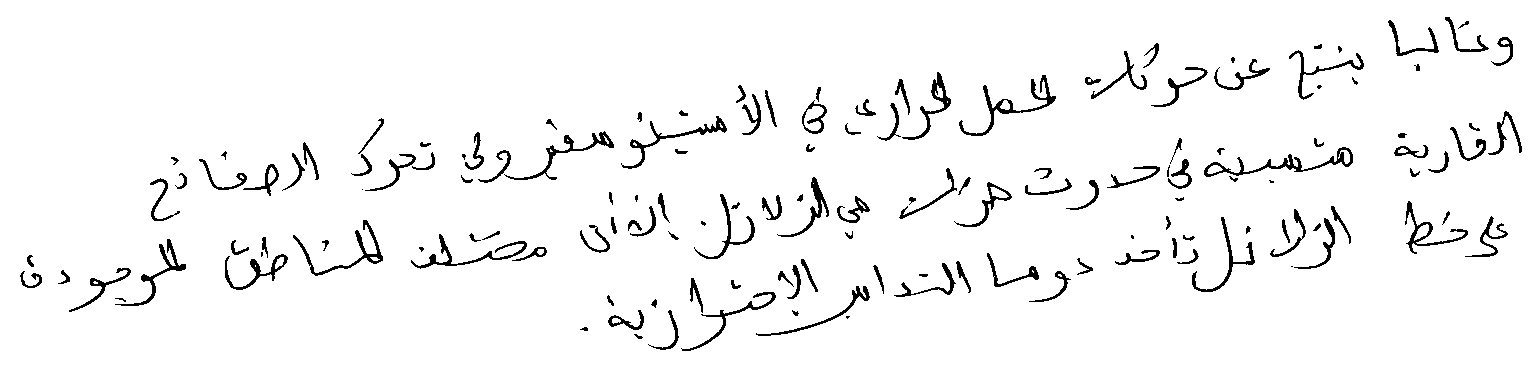 وغالبا ينتج عن حركات الحمل الحراري في الأستينوسفير وفي تحرك الصفائح
القارية متسببة في حدوث هزات هي الزلازل إلا أن مختلف المناطق الموجودة
على خط الزلازل تأخذ دوما التدابير الإحترازية.